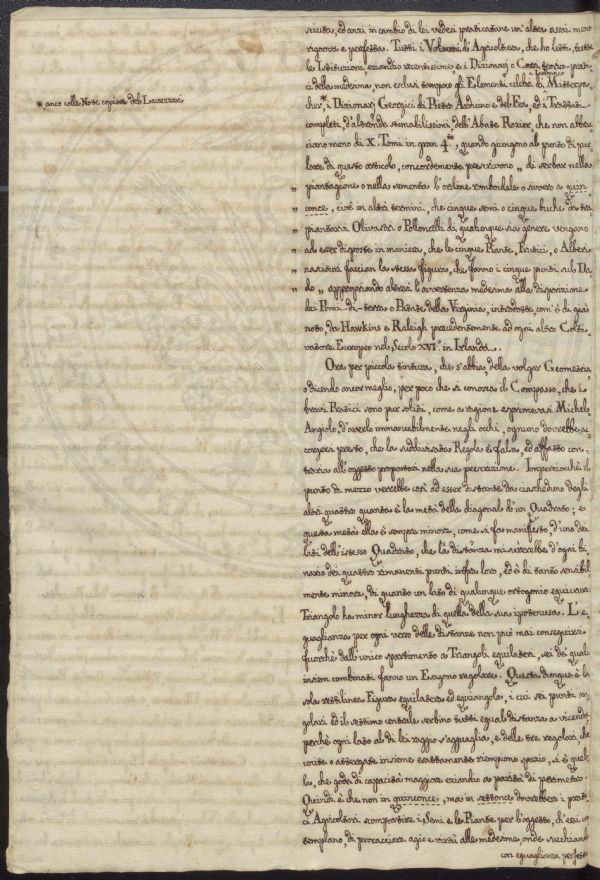 sciuta, ed anzi in cambio di lei vedesi praticatane un'altra assai meno
rigorosa e perfetta. Tutti i Volumi d'Agricoltura, che ho letti, tutte
le Istituzioni eziandio recentissime e i Dizionarj o Corsi teorico-prati-
ci della medesima, non esclusi tampoco gli Elementi celebri di Lodovico Mitterpa-
*, anco colle Note copiose del Lavezzari
cher*, i Dizionarj Georgici di Pietro Arduino e del Fea, ed i Trattati
completi, d'altronde stimabilissimi, dell'Abate Rozier, che non abbrac-
ciano meno di X. Tomi in gran 4.to, quando giungono al punto di par-
lare di questo articolo, concordemente prescrivono „ di serbar nella
„ piantagione o nella sementa l'ordine romboidale o ovvero a quin-
„ conce, cioè in altri termini, che cinque semi o cinque buche da tra
„ piantarvi Olivastri o Polloncelli di qualunque sia genere vengano
„ ad esser disposte in maniera, che le cinque Piante, Frutici, o Alberi
„ nascituri faccian la stessa figura, che fanno i cinque punti sul Da-
„ do „ appropriando altresì l'avvertenza medesima alla disposizione
dei Pomi-di-terra o Patate della Virginia, introdotte com'è di già
noto, da Hawkins e Raleigh precedentemente ad ogni altro Colti-
vatore Europeo nel Secolo XVI.o in Irlanda.
Ora per piccola tintura, che s'abbia della volgar Geometria,
o dicendo ancor meglio, per poco che si conosca il Compasso, che i
bravi Pratici sono pur soliti, come a ragione esprimevasi Michel-
Angiolo, d'averlo immancabilmente negli occhi, ognuno dovrebbe ac-
corgersi presto, che la suddivisata Regola è falsa, ed affatto con-
traria all'oggetto propostosi nella sua prescrizione. Imperciocchè il
punto di mezzo verrebbe così ad esser distante da ciaschedun degli
altri quattro quanta è la metà della diagonal d'un Quadrato; e
questa metà ella è sempre minore, come si fa manifesto, d'uno dei
lati dell'istesso Quadrato, che la distanza misurerebbe d'ogni bi-
nario dei quattro rimanenti punti infra loro, ed è di tanto sensibil-
mente minore, di quanto un lato di qualunque ortogonio equicrure
Triangolo ha minor lunghezza di quella della sua ipotenusa. L'e-
guaglianza per ogni verso delle distanze non può mai conseguirsi
fuorchè dall'unico spartimento a Triangoli equilateri, sei dei quali
insiem combinati fanno un Esagono regolare. Questa dunque è la
sola rettilinea Figura equilatera ed equiangola, i cui sei punti an-
golari ed il settimo centrale serbino tutti egual distanza a vicenda,
perchè ogni lato al di lei raggio s'agguaglia, e delle tre regolari, che
unite o attergate insieme esattamente riempiono spazio, si è quel-
la, che gode di capacità maggiore eziandio a parità di perimetro.
Quindi è che non in quinconce, ma in settonce dovrebbero i prati-
ci Agricoltori scompartire i Semi e le Piante per l'oggetto, ch'essi con-
templano, di procacciare agio e virtù alle medesime, onde succhiano
con eguaglianza perfetta